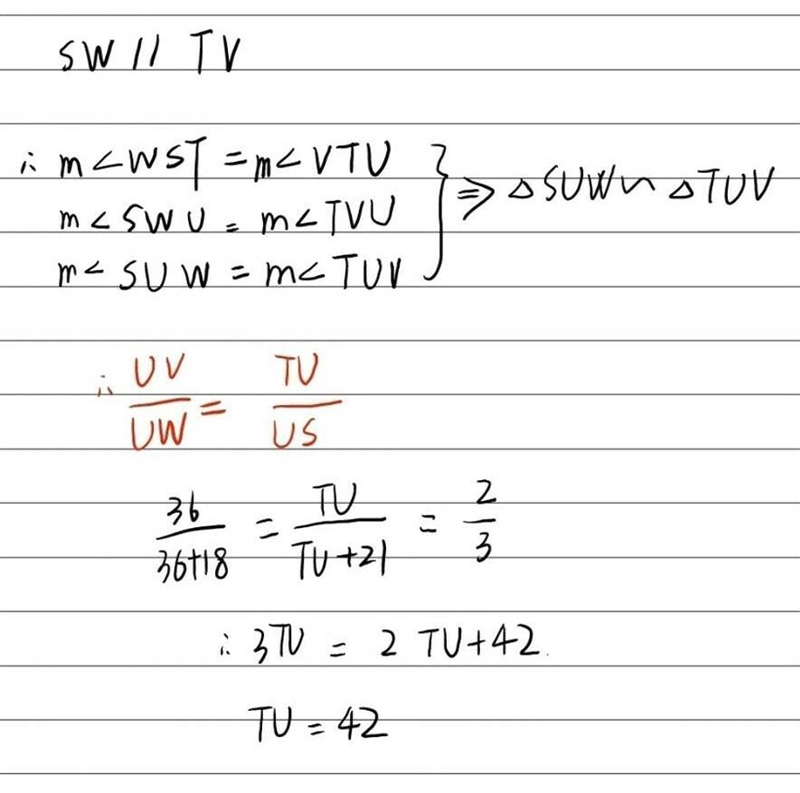 SW // TV
∴ m∠WST = m∠VTU
m∠SWU = m∠TVU } ⇒ △SUW∽△TUV
m∠SUW = m∠TUV
∴ UV/UW = TU/US
36/36+18 = TU/TU+21 = 2/3
∴ 3TU = 2TU+42.
TU = 42